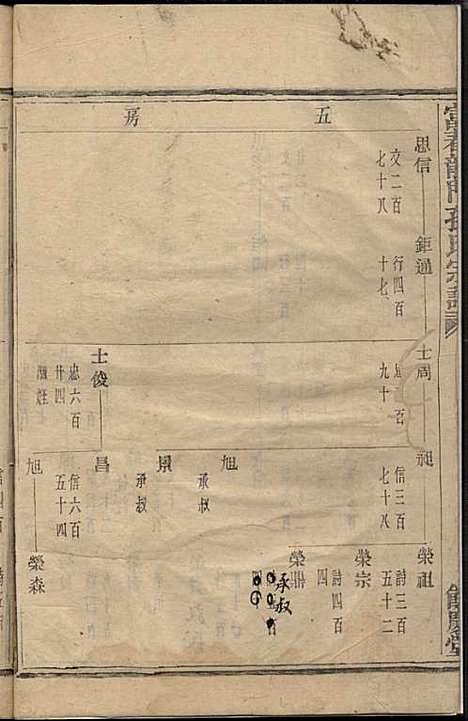 富春龍門孫氏宗譜
餘慶堂
五房
思信
文二百
七十八
鉅通
行四百
十七
士周
百
九十
士俊
忠六百
廿四
昶
信三百
七十八
旭
承叔
景
承叔
昌
旭
信六百
五十四
榮祖
詩三百
五十二
榮宗
詩四百
四
榮
承叔
榮森